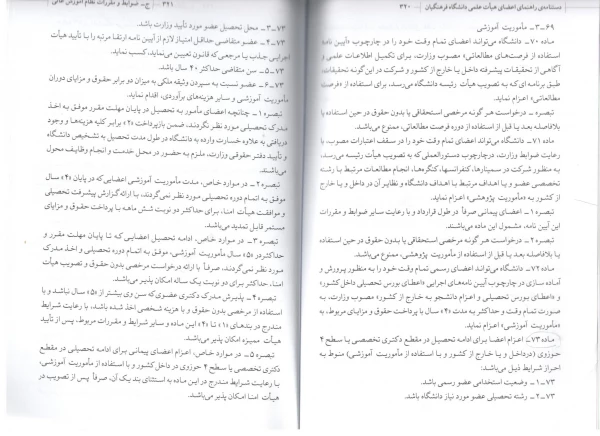 دستنامه‌ی راهنمای اعضای هیأت علمی دانشگاه فرهنگیان ۳۲۰
۶۹-۳- مأموریت آموزشی
ماده ۷۰- دانشگاه می‌تواند اعضای تمام وقت خود را در چارچوب «آیین نامه
استفاده از فرصت‌های مطالعاتی» مصوب وزارت، برای تکمیل اطلاعات علمی و
آگاهی از تحقیقات پیشرفته داخل یا خارج از کشور و شرکت در این گونه تحقیقات،
طبق برنامه ای که به تصویب هیأت رئیسه دانشگاه می‌رسد، برای استفاده از «فرصت
مطالعاتی» اعزام نماید.
تبصره- درخواست هر گونه مرخصی استحقاقی یا بدون حقوق در حین استفاده یا
بلافاصله بعد یا قبل از استفاده از دوره فرصت مطالعاتی، ممنوع می‌باشد.
ماده ۷۱- دانشگاه می‌تواند اعضای تمام وقت خود را در سقف اعتبارات مصوب، با
رعایت ضوابط وزارت، در چارچوب دستورالعملی که به تصویب هیأت رئیسه می‌رسد،
به منظور شرکت در سمینارها، کنفرانسها، کنگره‌ها، انجام مطالعات مرتبط با رشته
تخصصی عضو و یا اهداف مرتبط با اهداف دانشگاه و نظایر آن در داخل و یا خارج
از کشور به «مأموریت پژوهشی» اعزام نماید.
تبصره ۱- اعضای پیمانی صرفاً در طول قرارداد و با رعایت سایر ضوابط و مقررات
این آیین نامه، مشمول این ماده می‌باشند.
تبصره ۲- درخواست هر گونه مرخصی استحقاقی یا بدون حقوق در حین استفاده
یا بلافاصله بعد یا قبل از استفاده از مأموریت پژوهشی، ممنوع می‌باشد.
ماده ۷۲- دانشگاه می‌تواند اعضای رسمی تمام وقت خود را به منظور پرورش و
آماده سازی در چارچوب آیین نامه‌های اجرایی «اعطای بورس تحصیلی داخل کشور»
و «اعطای بورس تحصیلی و اعزام دانشجو به خارج از کشور» مصوب وزارت، به
صورت تمام وقت و حداکثر به مدت «۴» سال با پرداخت حقوق و مزایای مربوط، به
«مأموریت آموزشی» اعزام نماید.
ماده ۷۳- اعزام اعضا برای ادامه تحصیل در مقطع دکتری تخصصی یا سطح ۴
حوزوی (در داخل و یا خارج از کشور و با استفاده از مأموریت آموزشی) منوط به
احراز شرایط ذیل می‌باشد:
۷۳-۱- وضعیت استخدامی عضو رسمی باشد.
۷۳-۲- رشته تحصیلی عضو مورد نیاز دانشگاه باشد.
۳۲۱ ج- ضوابط و مقررات نظام آموزش عالی
۷۳-۳- محل تحصیل عضو مورد تأیید وزارت باشد.
۷۳-۴- عضو متقاضی حداقل امتیاز لازم از آیین نامه ارتقا مرتبه را با تأیید هیأت
اجرایی جذب یا مرجعی که قانون تعیین می‌نماید، کسب نماید.
۷۳-۵- سن متقاضی حداکثر ۴۰ سال باشد.
۷۳-۶- عضو نسبت به سپردن وثیقه ملکی به میزان دو برابر حقوق و مزایای دوران
مأموریت آموزشی و سایر هزینه‌های برآوردی، اقدام نماید.
تبصره ۱- چنانچه اعضای مأمور به تحصیل در پایان مهلت مقرر موفق به اخذ
مدرک تحصیلی مورد نظر نگردند، ضمن بازپرداخت «۲» برابر کلیه هزینه‌ها و وجوه
دریافتی به علاوه خسارت وارده به دانشگاه در طول مدت تحصیل به تشخیص دانشگاه
و تأیید دفتر حقوقی وزارت، ملزم به حضور در محل خدمت و انجام وظایف محول
می‌باشند.
تبصره ۲- در موارد خاص، مدت مأموریت آموزشی اعضایی که در پایان «۴» سال
موفق به اتمام دوره تحصیلی مورد نظر نمی‌گردند، با ارائه گزارش پیشرفت تحصیلی
و موافقت هیأت امنا، برای حداکثر دو نوبت شش ماهه با پرداخت حقوق و مزایای
مستمر قابل تمدید می‌باشد.
تبصره ۳- در موارد خاص، ادامه تحصیل اعضایی که تا پایان مهلت مقرر و
حداکثر در «۵» سال مأموریت آموزشی، موفق به اتمام دوره تحصیلی و اخذ مدرک
مورد نظر نمی‌گردند، صرفاً با ارائه درخواست مرخصی بدون حقوق و تصویب هیأت
امنا، حداکثر برای دو نوبت یک ساله امکان پذیر می‌باشد.
تبصره ۴- پذیرش مدرک دکتری عضوی که سن وی بیشتر از «۵» سال نباشد و با
استفاده از مرخصی بدون حقوق و با هزینه شخصی اخذ شده باشد، با رعایت شرایط
مندرج در بندهای «۱» تا «۴» این ماده و سایر شرایط و مقررات مربوط، پس از تأیید
هیأت ممیزه امکان پذیر می‌باشد.
تبصره ۵- در موارد خاص، اعزام اعضای پیمانی برای ادامه تحصیلی در مقطع
دکتری تخصصی یا سطح ۴ حوزوی در داخل کشور و با استفاده از مأموریت آموزشی
با رعایت شرایط مندرج در این ماده به استثنای بند یک آن، صرفاً پس از تصویب در
هیأت امنا امکان پذیر می‌باشد.